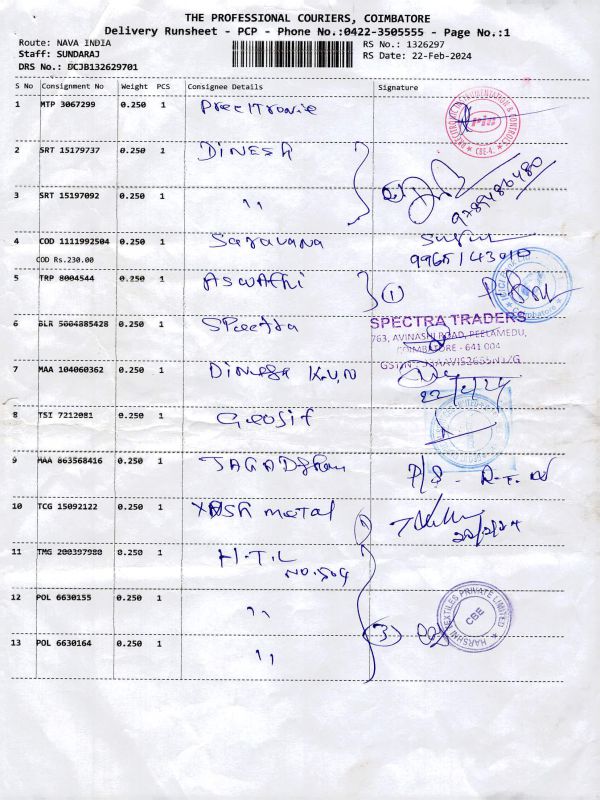 THE PROFESSIONAL COURIERS, COIMBATORE
Delivery Runsheet - PCP - Phone No.:0422-3505555 - Page No.:1
Route: NAVA INDIA
Staff: SUNDARAJ
DRS No.: DCJB132629701
RS No.: 1326297
RS Date: 22-Feb-2024
S No Consignment No Weight PCS Consignee Details Signature
1 MTP 3067299 0.250 1 Precitronic
2 SRT 15179737 0.250 1 DINESH
3 SRT 15197092 0.250 1 ,,
9789486480
4 COD 1111992504 0.250 1 Saravana
COD Rs.230.00
5 TRP 8004544 0.250 1 ASWAthi 1
6 BLR 5004885428 0.250 1 SPectra
SPECTRA TRADERS
763, AVINASHI ROAD, PEELAMEDU,
COIMBATORE - 641 004
7 MAA 104060362 0.250 1 DINESH K.U.N
22/2/24
8 TSI 7212081 0.250 1 Geosit
9 MAA 863568416 0.250 1
10 TCG 15092122 0.250 1 YASH metal
22/2/24
11 TMG 200397980 0.250 1 H.T.L
NO.504
12 POL 6630155 0.250 1 ,,
3
HARSHNI TEXTILES PRIVATE LIMITED
CBE
13 POL 6630164 0.250 1 ,,